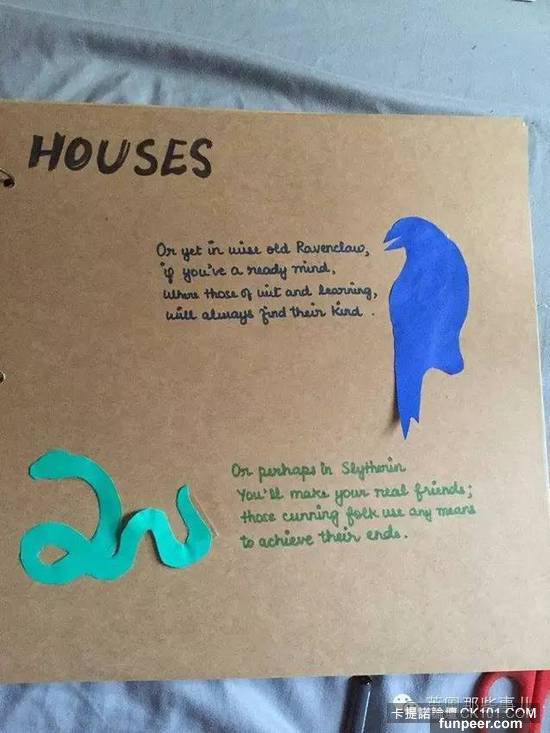 HOUSES
Or yet in wise old Ravenclaw,
if you've a ready mind,
where those of wit and learning,
will always find their kind.
Or perhaps in Slytherin
You'll make your real friends;
those cunning folk use any means
to achieve their ends.
英国那些事儿
卡提諾論壇 CK101.COM
funpeer.com